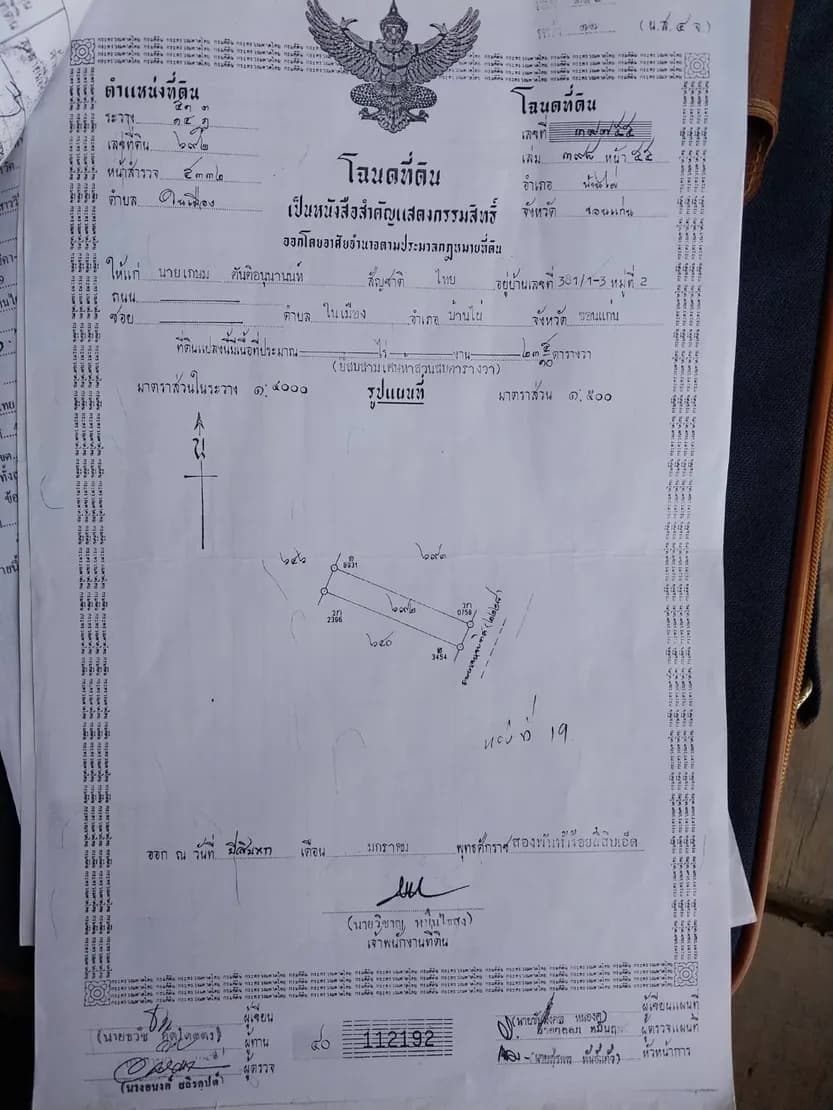 (น.ส. ๔ จ)
ตำแหน่งที่ดิน
ระวาง
เลขที่ดิน ๖๙๒
หน้าสำรวจ ๔๓๓๒
ตำบล ในเมือง
โฉนดที่ดิน
เลขที่ ๓๙๗๕๕
เล่ม ๓๙๘ หน้า ๕๕
อำเภอ บ้านไผ่
จังหวัด ขอนแก่น
โฉนดที่ดิน
เป็นหนังสือสำคัญแสดงกรรมสิทธิ์
ออกโดยอาศัยอำนาจตามประมวลกฎหมายที่ดิน
ให้แก่ นายเกษม ตันติอนุนานนท์ สัญชาติ ไทย อยู่บ้านเลขที่ 381/1-3 หมู่ที่ 2
ถนน
ซอย ตำบล ในเมือง อำเภอ บ้านไผ่ จังหวัด ขอนแก่น
ที่ดินแปลงนี้มีเนื้อที่ประมาณ ไร่ งาน ๒๓ ๕/๑๐ ตารางวา
(ยี่สิบสามเศษห้าส่วนสิบตารางวา)
มาตราส่วนในระวาง ๑:๔๐๐๐ รูปแผนที่ มาตราส่วน ๑:๕๐๐
น
๒๔๖ ๖๙๓
๖๙๒
2396 0758
๒๔๐
3454
หมู่ ที่ 19
ออก ณ วันที่ ยี่สิบหก เดือน มกราคม พุทธศักราช สองพันห้าร้อยสี่สิบเอ็ด
เจ้าพนักงานที่ดิน
ผู้เขียน
ผู้ทาน
ผู้ตรวจ
๔๐ 112192
ผู้เขียนแผนที่
ผู้ตรวจแผนที่
หัวหน้าการ